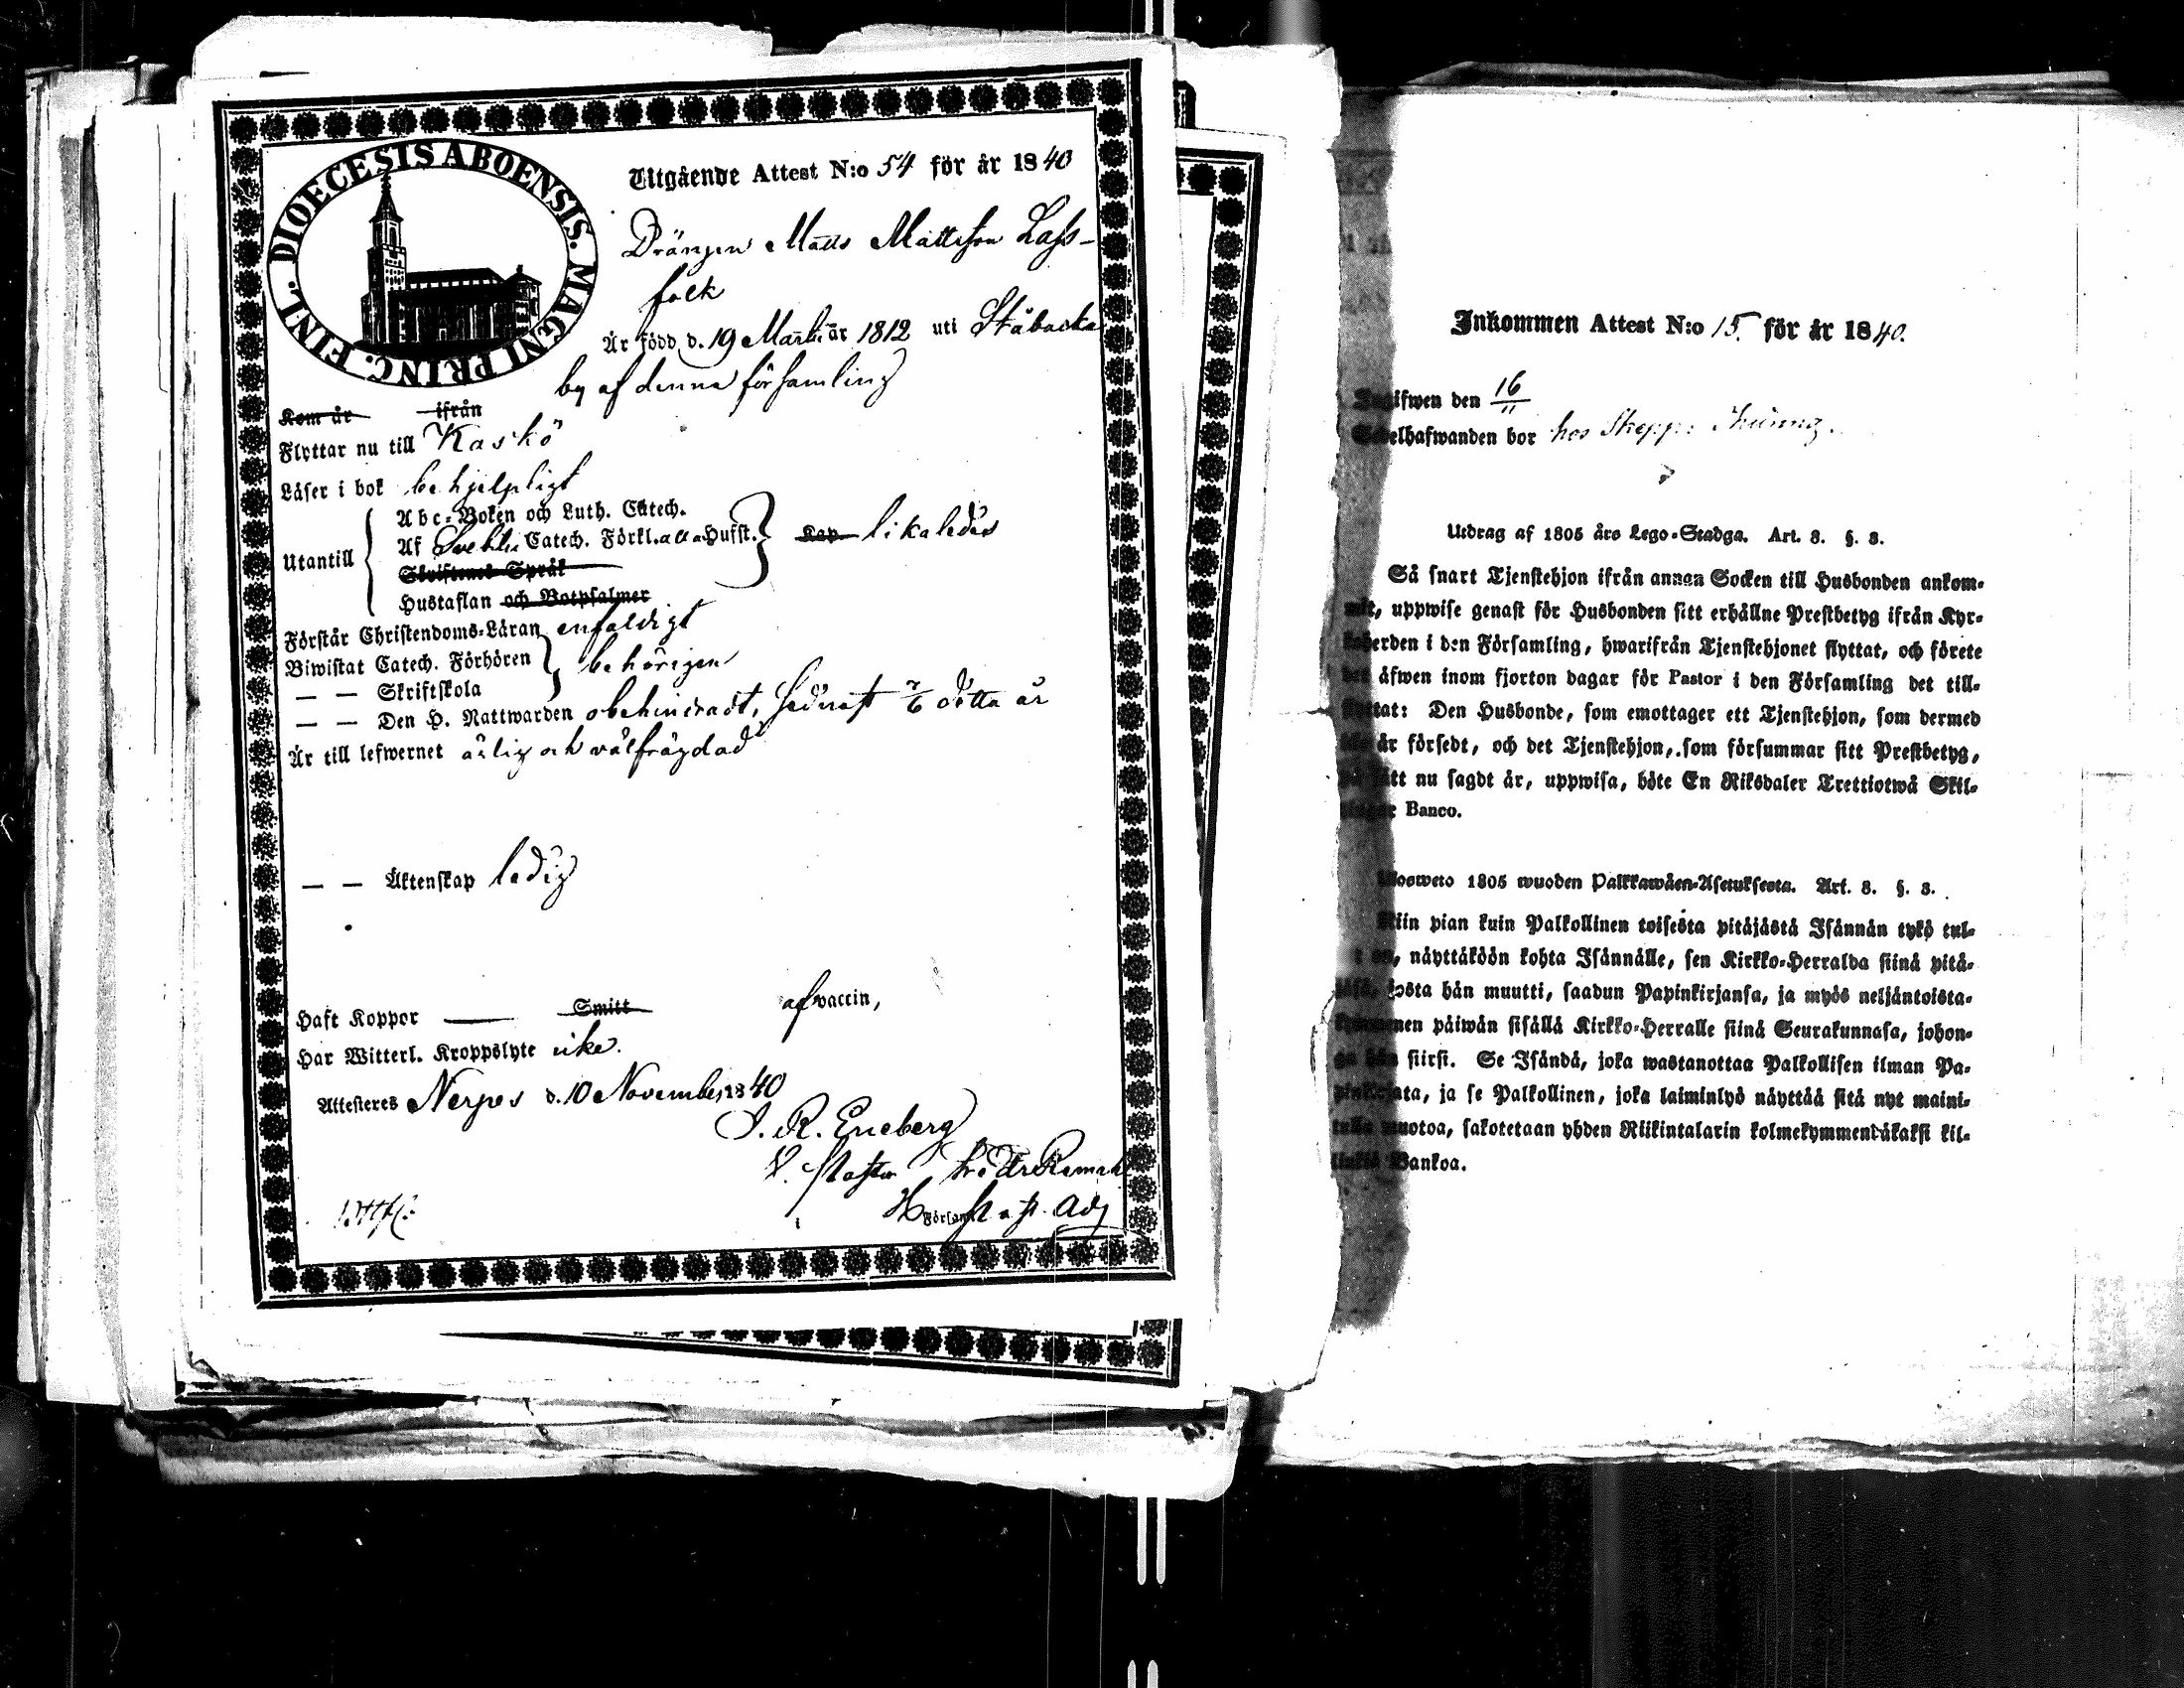 DIOECESIS ABOENSIS. MAGNI PRINC. FINL.
Utgående Attest N:o 54 för år 1840
Drängen Matts Mattsson Lass-
falk
Är född d. 19 Martii år 1812 uti Ståbacka
by af denna församling
Kom år ifrån
Flyttar nu till Kaskö
Läser i bok behjelpligt
Abc-Boken och Luth. Catech.
Utantill Af Svebilii Catech. Förkl. Husst. Kan likaledes
Skriftenes Språk
Hustaflan och Botpsalmer
Förstår Christendoms-Läran enfaldigt
Biwistat Catech. Förhören behörigen
— — Skriftskola
— — Den H. Nattwarden obehindradt, sednast 7/6 detta år
Är till lefwernet ärlig och välfrägdad
— — Äktenskap ledig
Haft Koppor Smitt af vaccin,
Har Witterl. Kroppslyte icke.
Attesteras Nerpes d. 10 November 1840
I. R. Eneberg
V. Pastor
Församl. Adj
Inkommen Attest N:o 15. för år 1840.
Ingifwen den 16/11
Sedelhafwanden bor hos Skepp:
Utdrag af 1805 års Lego-Stadga. Art. 8. §. 8.
Så snart Tjenstehjon ifrån annan Socken till Husbonden ankom-
mit, uppwise genast för Husbonden sitt erhållne Prestbetyg ifrån Kyr-
koherden i den Församling, hwarifrån Tjenstehjonet flyttat, och förete
det äfwen inom fjorton dagar för Pastor i den Församling det till-
flyttat: Den Husbonde, som emottager ett Tjenstehjon, som dermed
icke är försedt, och det Tjenstehjon, som försummar sitt Prestbetyg,
på sätt nu sagdt är, uppwisa, böte En Riksdaler Trettiotwå Skil-
lingar Banco.
Ulosweto 1805 wuoden Palkkawäen-Asetuksesta. Art. 8. §. 8.
Niin pian kuin Palkollinen toisesta pitäjästä Isännän tykö tul-
lut on, näyttäköön kohta Isännälle, sen Kirkko-Herralda siinä pitä-
jäsä, josta hän muutti, saadun Papinkirjansa, ja myös neljäntoista-
kymmenen päiwän sisällä Kirkko-Herralle siinä Seurakunnasa, johon-
ga hän siirsi. Se Isändä, joka wastanottaa Palkollisen ilman Pa-
pinkirjata, ja se Palkollinen, joka laiminlyö näyttää sitä nyt maini-
tulla muotoa, sakotetaan yhden Riikintalarin kolmekymmendäkaksi kil-
lingiä Bankoa.